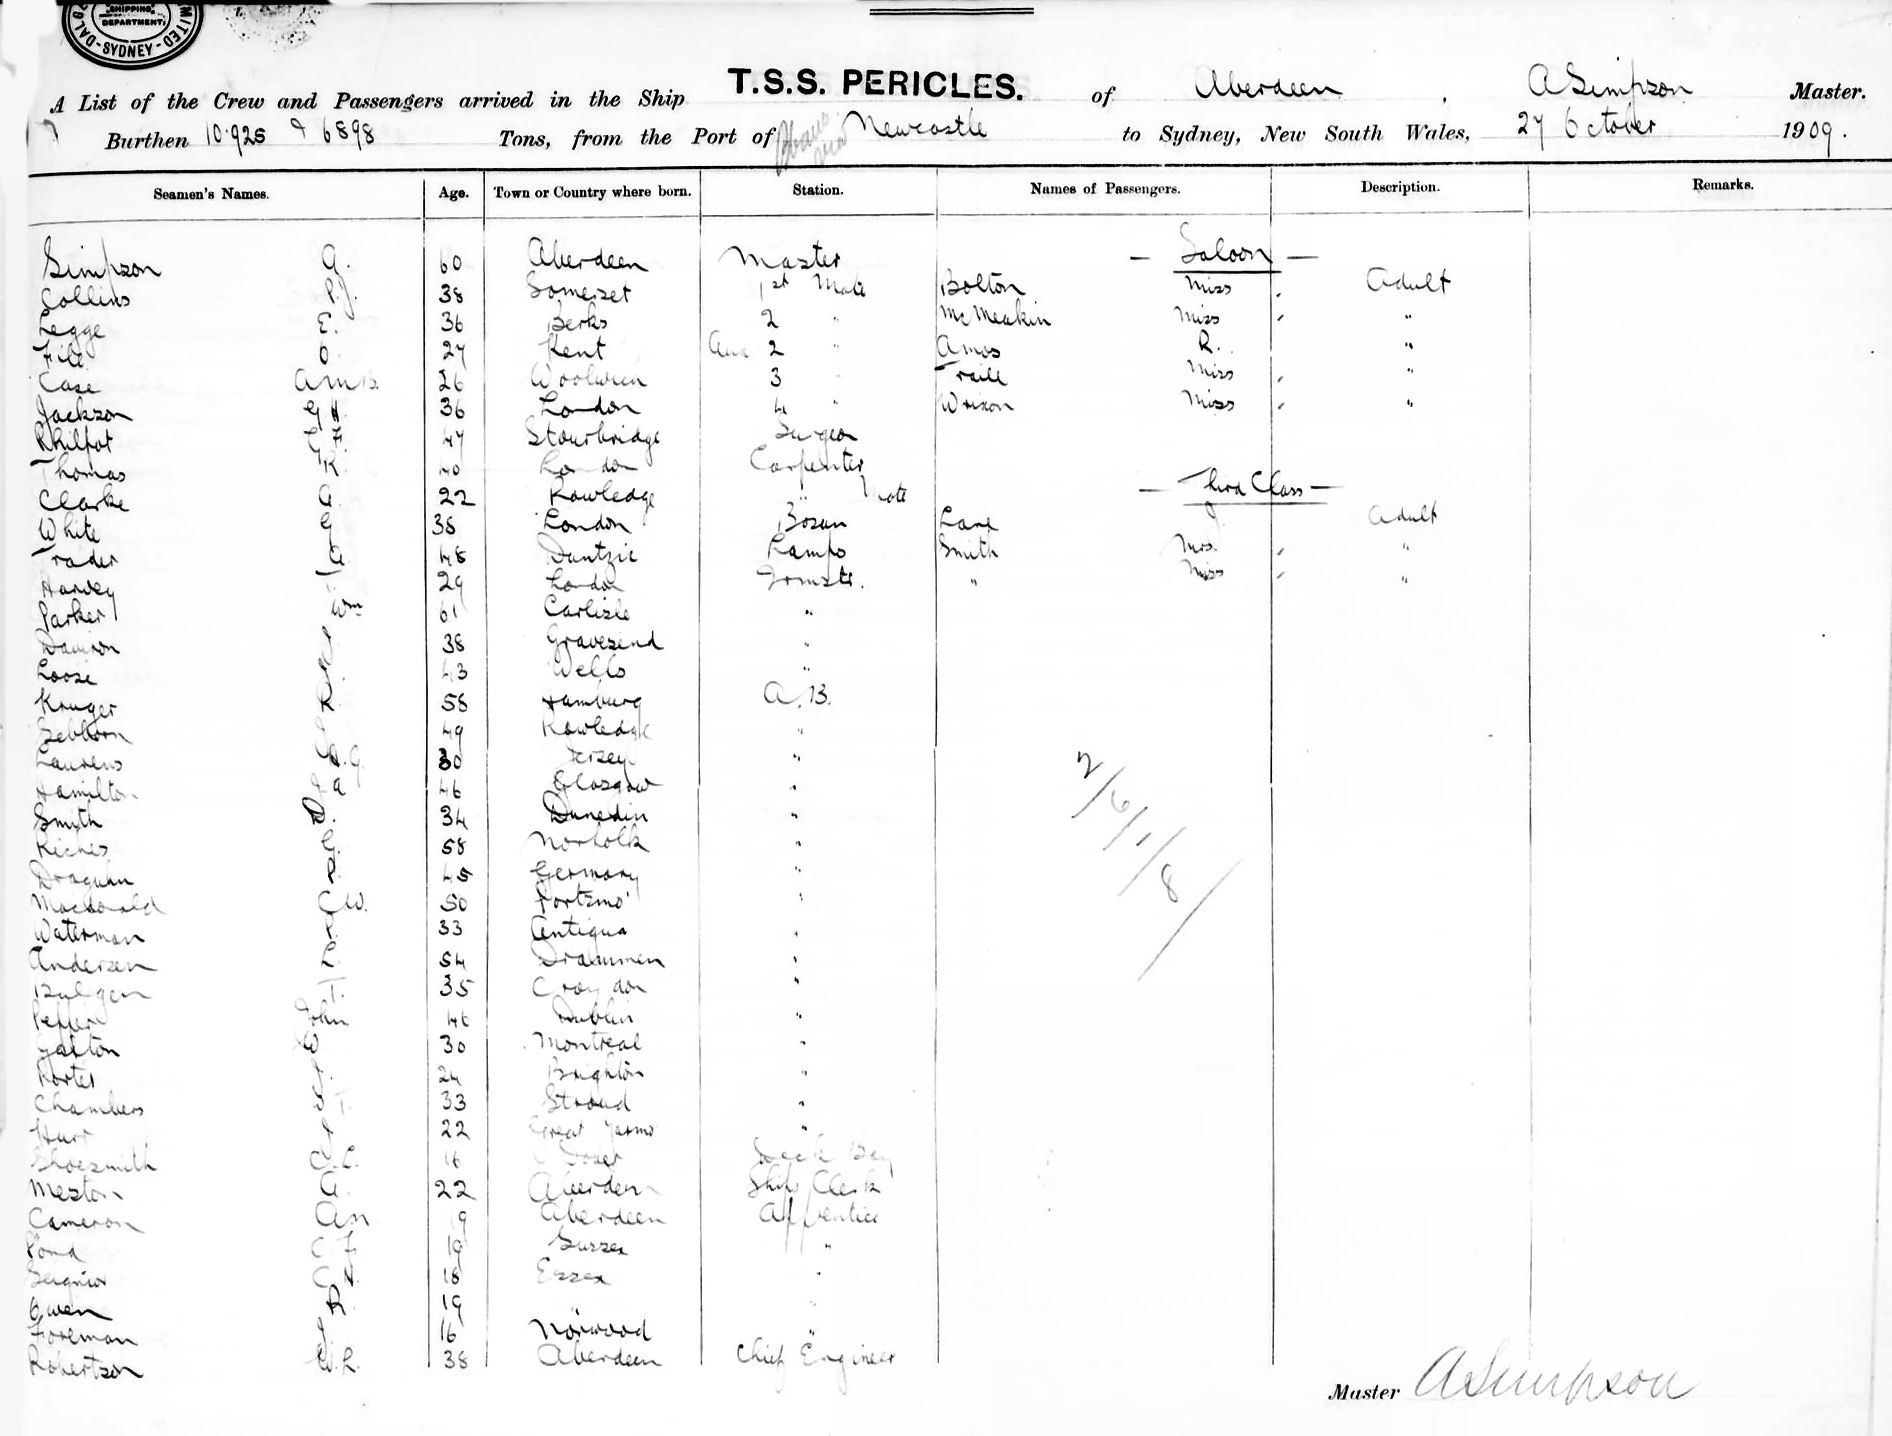 SHIPPING
DEPARTMENT
SYDNEY
T.S.S. PERICLES.
A List of the Crew and Passengers arrived in the Ship of Aberdeen, A Simpson Master.
Burthen 10.925 & 6898 Tons, from the Port of Newcastle to Sydney, New South Wales, 27 October 1909.
Seamen's Names. Age. Town or Country where born. Station. Names of Passengers. Description. Remarks.
— Saloon —
Simpson A. 60 Aberdeen Master
Collins P.J. 38 Somerset 1st Mate Bolton Miss Adult
Legge E. 36 Berks 2 " McMeakin Miss "
O. 27 Kent Aux 2 " Amos R. "
Case A.M.B. 26 Woolwich 3 " Traill Miss "
Jackson G H. 36 London 4 " Wrixon Miss "
Philpot 47 Stourbridge Surgeon
Thomas R. 40 London Carpenter
— Third Class —
Clarke A. 22 Rowledge " Mate
White G 38 London Bosun Lane J Adult
Trader A 48 Dantzic Lamps Smith Mrs. "
Harvey 29 London Trmstr. " Miss "
Parker Wm 61 Carlisle "
38 Gravesend "
Loose 43 Wells "
Kruger R 58 Hamburg A.B.
49 Rowledge "
Laurens 30 Jersey "
Hamilton a 46 Glasgow "
Smith D. 34 Dunedin "
Riches 58 Norfolk "
45 Germany "
Macdonald C W. 50 Portsmo' "
Waterman 33 Antigua "
Andersen L. 54 Drammen "
35 Croydon "
John 46 Dublin "
W 30 Montreal "
Porter 24 Brighton "
Chambers 33 Stroud "
22 Great Yarmo "
Shoesmith C.C. 16 Dover Deck Boy
Meston A. 22 Aberdeen Ships Clerk
Cameron An 19 Aberdeen Apprentice
Pond 19 Sussex "
18 Essex "
Owen R. 19 " "
Foreman J 16 Norwood "
Robertson W.R. 38 Aberdeen Chief Engineer
2/6/1/8/
Master A Simpson